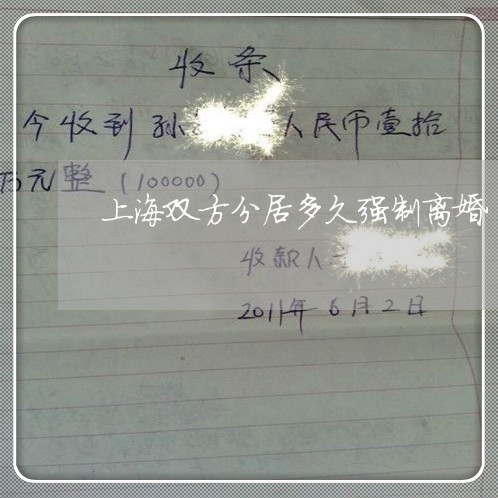 收条
今收到孙 人民币壹拾
万元整（100000）
上海双方分居多久强制离婚
收款人
2011年6月2日